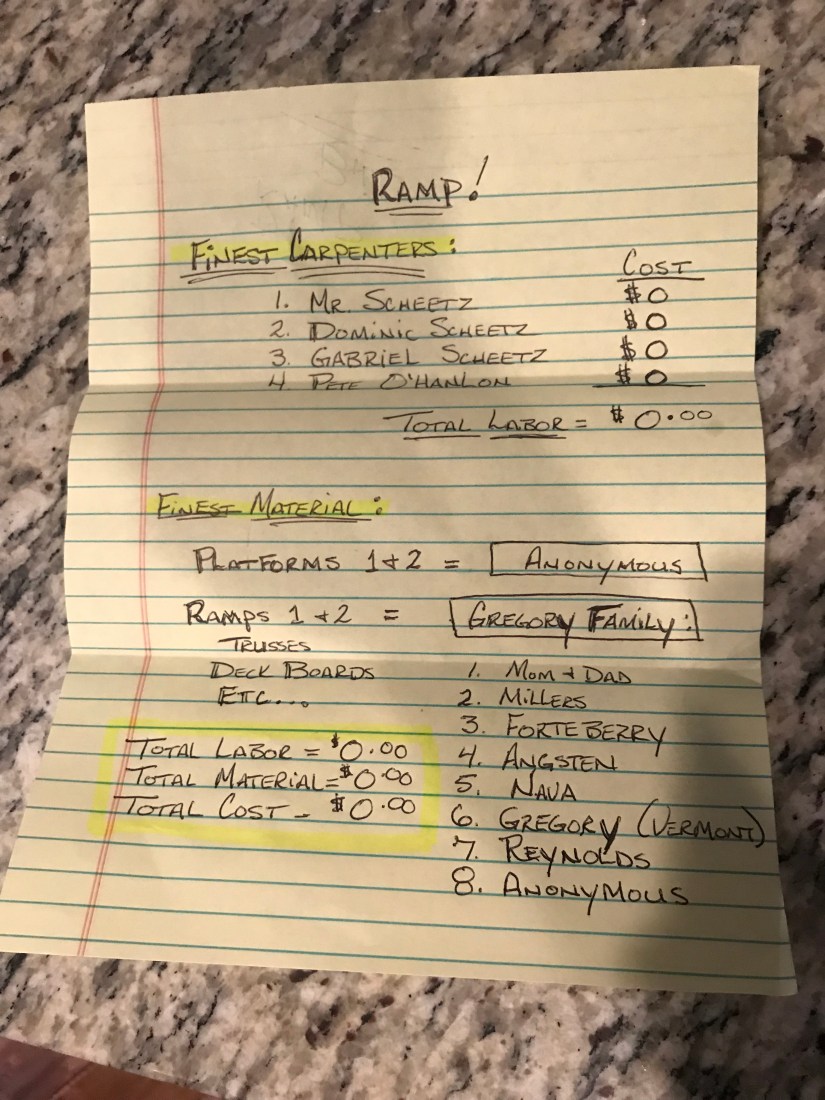 RAMP!
FINEST CARPENTERS: COST
1. MR. SCHEETZ $0
2. DOMINIC SCHEETZ $0
3. GABRIEL SCHEETZ $0
4. PETE O'HANLON $0
TOTAL LABOR = $0.00
FINEST MATERIAL:
PLATFORMS 1+2 = ANONYMOUS
RAMPS 1+2 = GREGORY FAMILY:
TRUSSES
DECK BOARDS
ETC...
1. MOM + DAD
2. MILLERS
3. FORTEBERRY
4. ANGSTEN
5. NAVA
6. GREGORY (VERMONT)
7. REYNOLDS
8. ANONYMOUS
TOTAL LABOR = $0.00
TOTAL MATERIAL = $0.00
TOTAL COST - $0.00